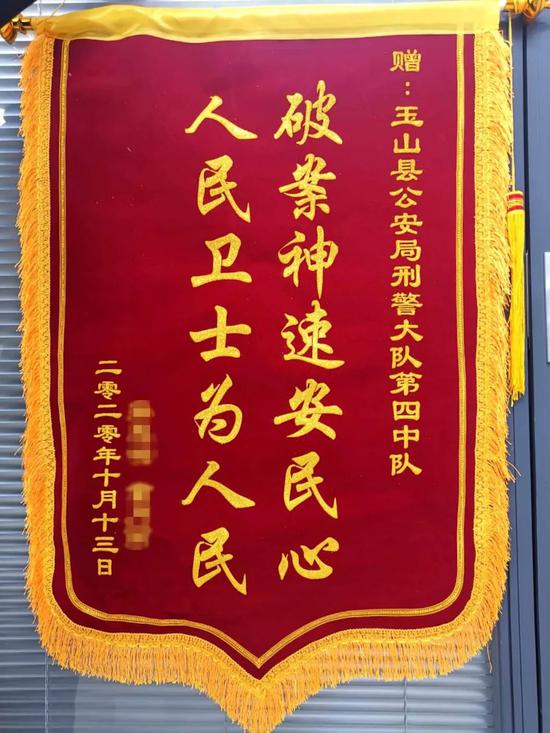 赠：玉山县公安局刑警大队第四中队
破案神速安民心
人民卫士为人民
二零二零年十月十三日